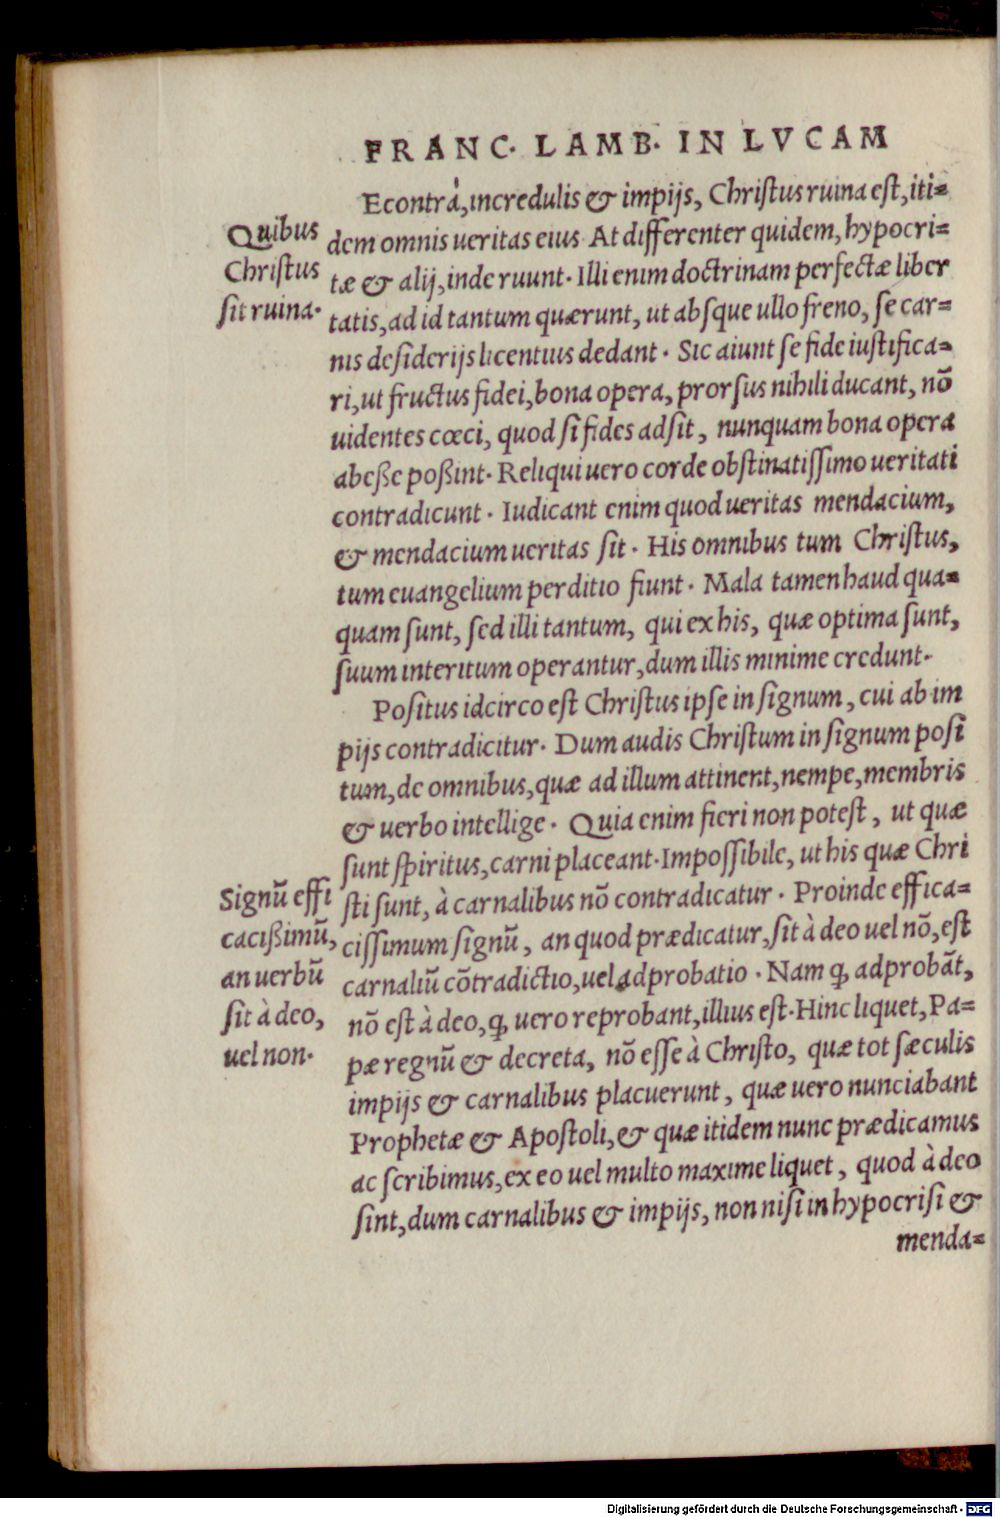 FRANC. LAMB. IN LVCAM
Econtrà, incredulis & impijs, Christus ruina est, iti=
dem omnis ueritas eius At differenter quidem, hypocri=
tæ & alij, inde ruunt. Illi enim doctrinam perfectæ liber
tatis, ad id tantum quærunt, ut absque ullo freno, se car=
nis desiderijs licentius dedant. Sic aiunt se fide iustifica=
ri, ut fructus fidei, bona opera, prorsus nihili ducant, nō
uidentes cœci, quod si fides adsit, nunquam bona opera
abeße poßint. Reliqui uero corde obstinatissimo ueritati
contradicunt. Iudicant enim quod ueritas mendacium,
& mendacium ueritas sit. His omnibus tum Christus,
tum euangelium perditio fiunt. Mala tamen haud qua=
quam sunt, sed illi tantum, qui ex his, quæ optima sunt,
suum interitum operantur, dum illis minime credunt.
Positus idcirco est Christus ipse in signum, cui ab im
pijs contradicitur. Dum audis Christum in signum posi
tum, de omnibus, quæ ad illum attinent, nempe, membris
& uerbo intellige. Quia enim fieri non potest, ut quæ
sunt spiritus, carni placeant. Impossibile, ut his quæ Chri
sti sunt, à carnalibus nō contradicatur. Proinde effica=
cissimum signū, an quod prædicatur, sit à deo uel nō, est
carnaliū cōtradictio, uel adprobatio. Nam ꝙ adprobāt,
nō est à deo, ꝙ uero reprobant, illius est. Hinc liquet, Pa=
pæ regnū & decreta, nō esse à Christo, quæ tot sæculis
impijs & carnalibus placuerunt, quæ uero nunciabant
Prophetæ & Apostoli, & quæ itidem nunc prædicamus
ac scribimus, ex eo uel multo maxime liquet, quod à deo
sint, dum carnalibus & impijs, non nisi in hypocrisi &
menda=
Quibus
Christus
sit ruina.
Signū effi
cacißimū,
an uerbū
sit à deo,
uel non.
Digitalisierung gefördert durch die Deutsche Forschungsgemeinschaft - DFG